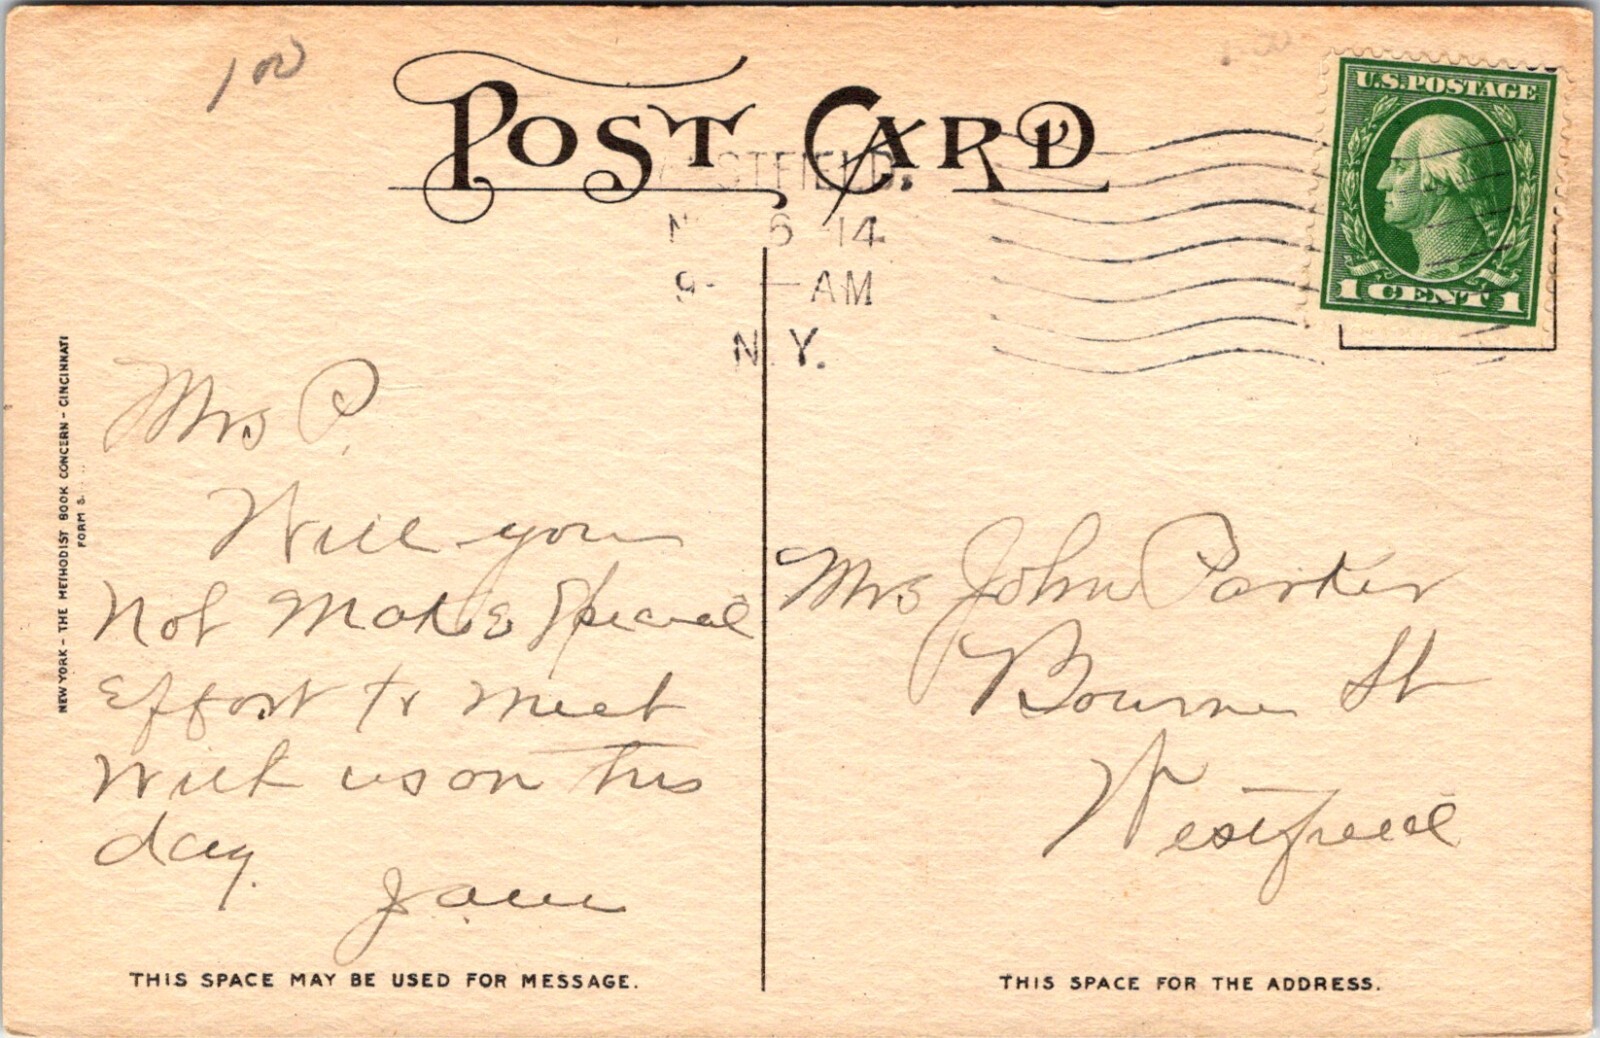 100
POST CARD
U.S. POSTAGE
1 CENT 1
6 14
9- AM
N.Y.
NEW YORK - THE METHODIST BOOK CONCERN - CINCINNATI
FORM S.
Mrs P.
Will you
Not Make Special
Effort to meet
With us on this
day.
Mrs John Parker
Bourne St
Westfield
THIS SPACE MAY BE USED FOR MESSAGE.
THIS SPACE FOR THE ADDRESS.